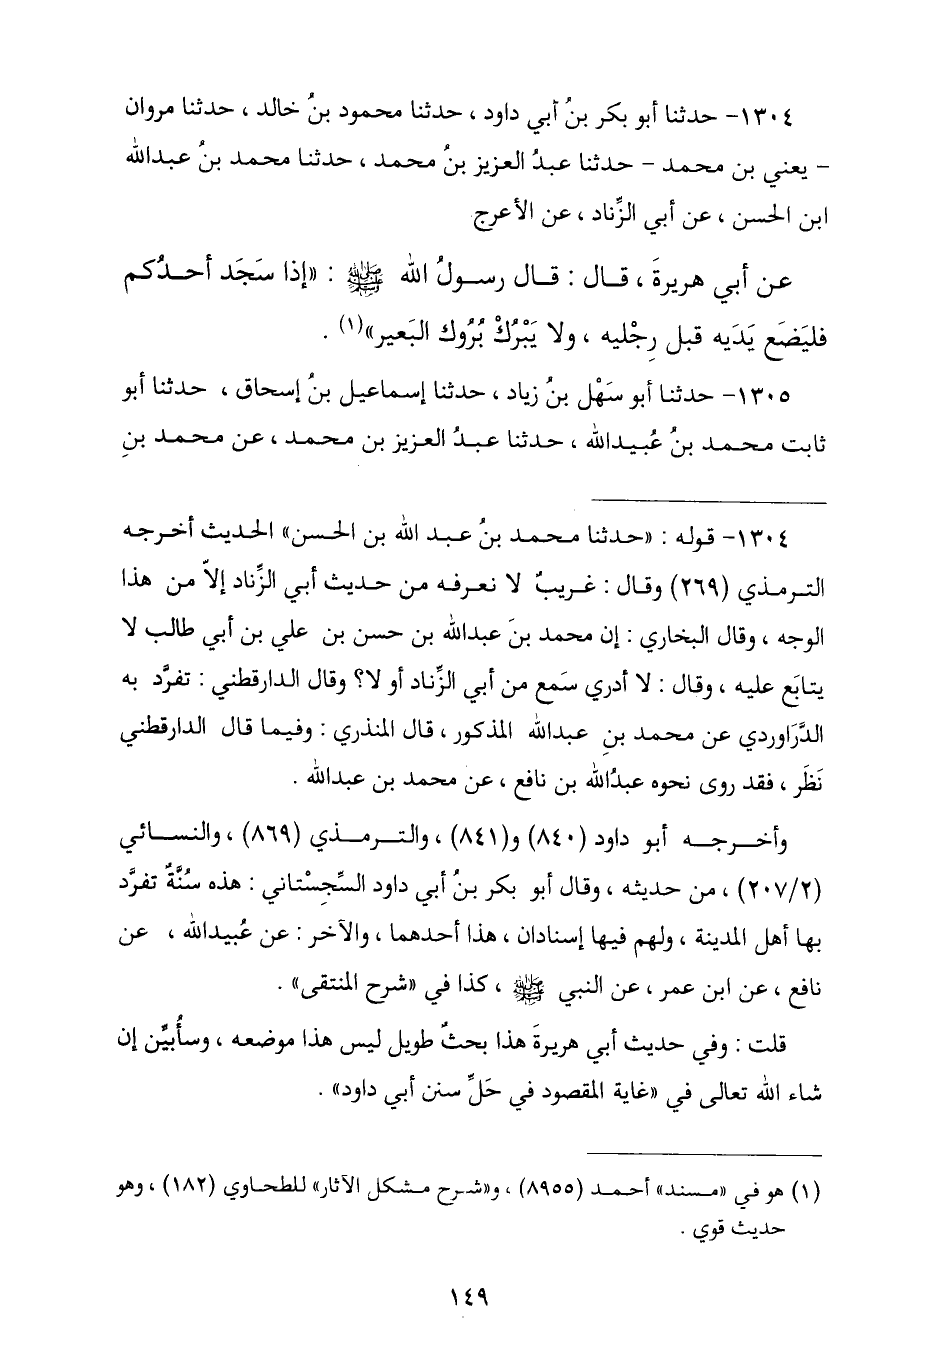 ١٣٠٤- حدثنا أبو بكر بنُ أبي داود ، حدثنا محمود بنُ خالد ، حدثنا مروان
- يعني بن محمد - حدثنا عبدُ العزيز بنُ محمد ، حدثنا محمد بنُ عبدالله
ابن الحسن ، عن أبي الزِّناد ، عن الأعرج
عن أبي هريرةَ ، قال : قال رسولُ الله ﷺ : «إذا سَجَد أحدُكم
فليَضَع يَدَيه قبل رِجْليه ، ولا يَبْرُكْ بُرُوك البَعير»(١) .
١٣٠٥- حدثنا أبو سَهْل بنُ زياد ، حدثنا إسماعيل بنُ إسحاق ، حدثنا أبو
ثابت محمد بنُ عُبيدالله ، حدثنا عبدُ العزيز بن محمد ، عن محمد بنِ
١٣٠٤- قوله : «حدثنا محمد بنُ عبد الله بن الحسن» الحديث أخرجه
الترمذي (٢٦٩) وقال : غريبٌ لا نعرفه من حديث أبي الزِّناد إلاّ من هذا
الوجه ، وقال البخاري : إن محمد بنَ عبدالله بن حسن بن علي بن أبي طالب لا
يتابَع عليه ، وقال : لا أدري سَمع من أبي الزِّناد أو لا؟ وقال الدارقطني : تفرَّد به
الدَّرَاوردي عن محمد بنِ عبدالله المذكور ، قال المنذري : وفيما قال الدارقطني
نَظَر ، فقد روى نحوه عبدُالله بن نافع ، عن محمد بن عبدالله .
وأخرجه أبو داود (٨٤٠) و(٨٤١) ، والترمذي (٨٦٩) ، والنسائي
(٢٠٧/٢) ، من حديثه ، وقال أبو بكر بنُ أبي داود السِّجِسْتاني : هذه سُنَّةٌ تفرَّد
بها أهل المدينة ، ولهم فيها إسنادان ، هذا أحدهما ، والآخر : عن عُبيدالله ، عن
نافع ، عن ابن عمر ، عن النبي ﷺ ، كذا في «شرح المنتقى» .
قلت : وفي حديث أبي هريرةَ هذا بحثٌ طويل ليس هذا موضعه ، وسأُبيِّن إن
شاء الله تعالى في «غاية المقصود في حَلِّ سنن أبي داود» .
(١) هو في «مسند» أحمد (٨٩٥٥) ، و«شرح مشكل الآثار» للطحاوي (١٨٢) ، وهو
حديث قوي .
١٤٩